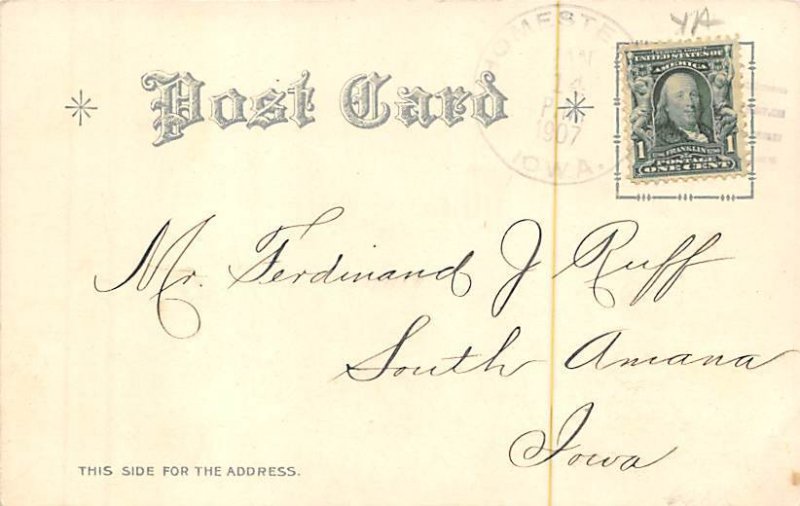 YA
HOMESTE
14
P.M.
1907
IOWA.
Post Card
UNITED STATES OF
AMERICA
1 FRANKLIN 1
POSTAGE
ONE CENT
Mr. Ferdinand J Ruff
South Amana
Iowa
THIS SIDE FOR THE ADDRESS.